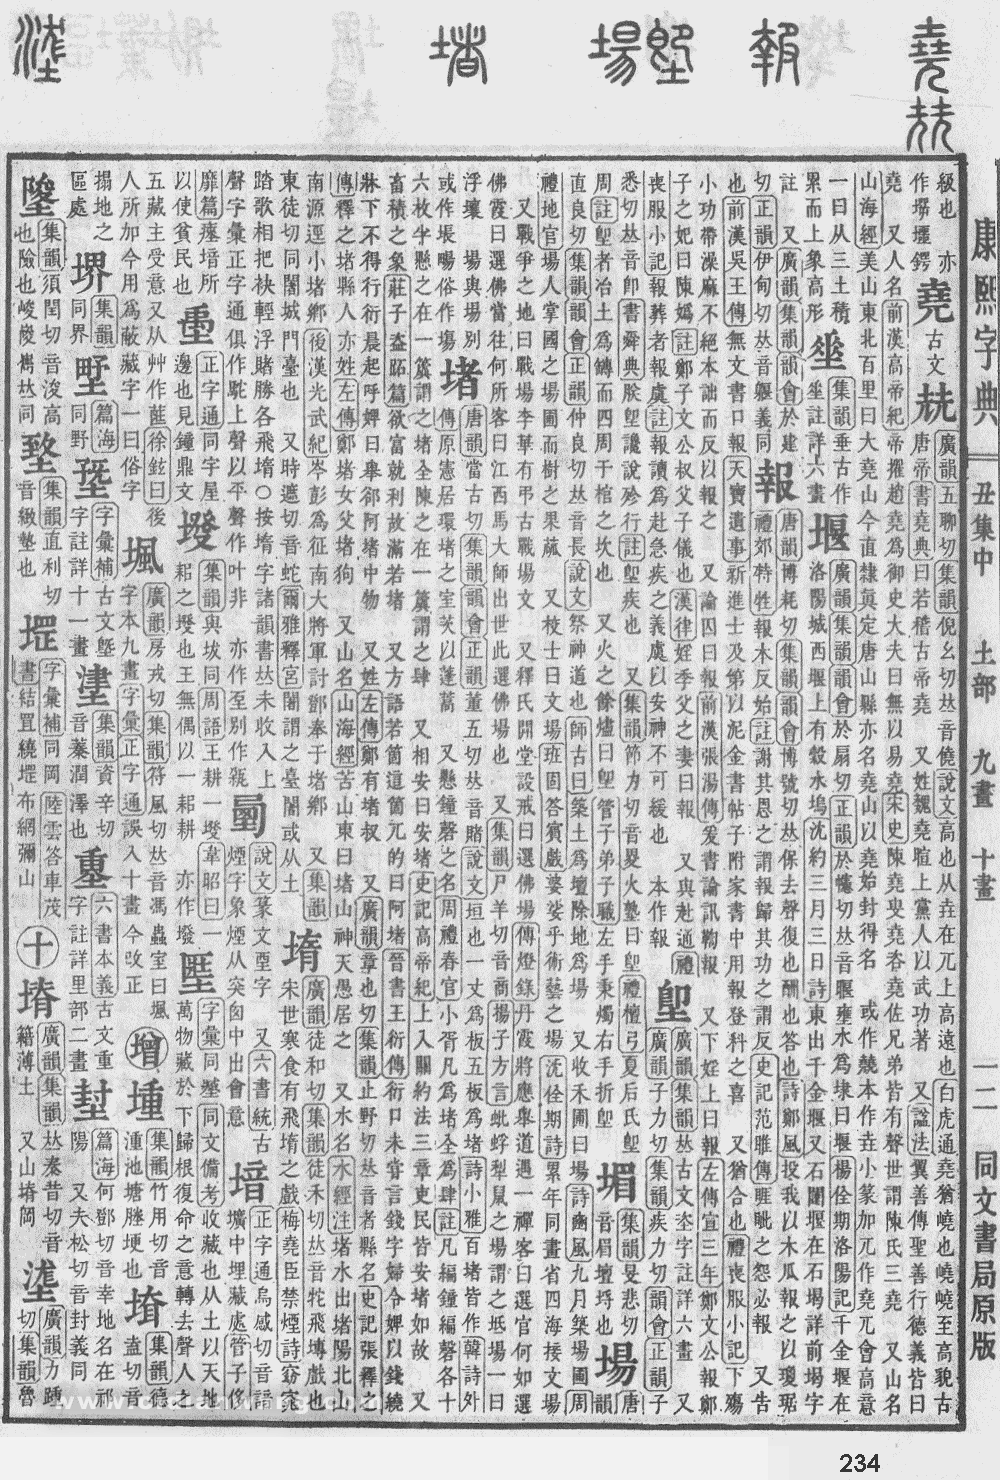 康熙字典 丑集中 土部 九畫 十畫 一二 同文書局原版
級也 亦 堯 廣韻五聊切集韻倪幺切𠀤音僥說文高也从垚在兀上高遠也白虎通堯猶嶢也嶢嶢至高貌古
作堮壥鍔 古文 唐帝書堯典曰若稽古帝堯 又姓魏堯暄上黨人以武功著 又諡法翼善傳聖善行德義皆曰
堯 又人名前漢高帝紀帝擢趙堯爲御史大夫曰無以易堯宋史陳堯叟堯咨堯佐兄弟皆有聲世謂陳氏三堯 又山名
山海經美山東北百里曰大堯山今直隷眞定唐山縣亦名堯山以堯始封得名 或作 本作垚小篆加兀作堯兀會高意
一曰从三土積 集韻垂古作 堰 廣韻集韻韻會於扇切正韻於幰切𠀤音匽壅水爲埭曰堰楊佺期洛陽記千金堰在
累而上象高形 坐註詳六畫 洛陽城西堰上有穀水塢沈約三月三日詩東出千金堰又石闥堰在石塲詳前塲字
註 又廣韻集韻韻會於建 報 唐韻博耗切集韻韻會博號切𠀤保去聲復也酬也答也詩鄭風投我以木瓜報之以瓊琚
切正韻伊甸切𠀤音躽義同 禮郊特牲報本反始註謝其恩之謂報歸其功之謂反史記范雎傳睚眦之怨必報 又告
也前漢吳王傳無文書口報天寶遺事新進士及第以泥金書帖子附家書中用報登科之喜 又猶合也禮喪服小記下殤
小功帶澡麻不絕本詘而反以報之 又論囚曰報前漢張湯傳爰書論訊鞫報 又下婬上曰報左傳宣三年鄭文公報鄭
子之妃曰陳嬀註鄭子文公叔父子儀也漢律婬季父之妻曰報 又與赴通禮
喪服小記報葬者報虞註報讀爲赴急疾之義虞以安神不可緩也 本作報 堲 廣韻子力切集韻疾力切韻會正韻子
悉切𠀤音卽書舜典朕堲讒說殄行註堲疾也 又集韻節力切音畟火塾曰堲禮檀弓夏后氏堲
周註堲者冶土爲甎而四周于棺之坎也 又火之餘燼曰堲管子弟子職左手秉燭右手折堲 堳 音眉壇埒也 場
直良切集韻韻會正韻仲良切𠀤音長說文祭神道也師古曰築土爲壇除地爲場 又收禾圃曰場詩豳風九月築場圃周
禮地官場人掌國之場圃而樹之果蓏 又校士曰文場班固答賓戲婆娑乎術藝之場沈佺期詩累年同畫省四海接文場
又戰爭之地曰戰場李華有弔古戰場文 又釋氏開堂設戒曰選佛場傳燈錄丹霞將應舉道遇一禪客曰選官何如選
佛霞曰選佛當往何所客曰江西馬大師出世此選佛場也 又集韻尸羊切音商揚子方言蚍蜉犁鼠之場謂之坻場一曰
浮壤 場與場別 堵 唐韻當古切集韻韻會正韻董五切𠀤音賭說文垣也一丈爲板五板爲堵詩小雅百堵皆作韓詩外
或作塲暘俗作塲 傳原憲居環堵之室茨以蓬蒿 又懸鐘磬之名周禮春官小胥凡爲堵全爲肆註凡編鐘編磬各十
六枚半懸之在一簴謂之堵全陳之在一簴謂之肆 又相安曰安堵史記高帝紀上入關約法三章吏民皆安堵如故 又
畜積之象莊子盜跖篇欲富就利故滿若堵 又方語若箇這箇兀的曰阿堵晉書王衍傳衍口未嘗言錢字婦令婢以錢繞
牀下不得行衍晨起呼婢曰舉卻阿堵中物 又姓左傳鄭有堵叔 又廣韻章也切集韻止野切𠀤音者縣名史記張釋之
傳釋之堵縣人亦姓左傳鄭堵女父堵狗 又山名山海經苦山東曰堵山神天愚居之 又水名水經注堵水出堵陽北山
南源逕小堵鄕後漢光武紀岑彭爲征南大將軍討鄧奉于堵鄕 又集韻 堶 廣韻徒和切集韻徒禾切𠀤音牠飛塼戲也
東徒切同闍城門臺也 又時遮切音蛇爾雅釋宮闍謂之臺闍或从土 朱世寒食有飛堶之戲梅堯臣禁煙詩窈窕
踏歌相把袂輕浮賭勝各飛堶○按堶字諸韻書𠀤未收入上 說文篆文垔字 又六書統古 堷 正字通烏感切音諳
聲字彙正字通俱作鴕上聲以平聲作叶非 亦作至別作甀 煙字象煙从突囪中出會意 壙中埋藏處管子侈
靡篇瘞堷所 正字通同字屋 堫 集韻與坺同周語王耕一墢韋昭曰一 堙 字彙同㙜同文備考收藏也从土以天地
以使貧民也 邊也見鐘鼎文 耜之墢也王無偶以一耜耕 亦作墢 萬物藏於下歸根復命之意轉去聲人之
五藏主受意又从艸作葅徐鉉曰後 堸 廣韻房戎切集韻符風切𠀤音馮蟲室曰堸 增 堹 集韻竹用切音 堉 集韻德
人所加今用爲蔽藏字一曰俗字 字本九畫字彙正字通誤入十畫今改正 湩池塘塍埂也 盍切音
搨地之 堺 集韻 墅 篇海 字彙補古文塈 集韻資辛切 重 六書本義古文重 封 篇海何鄧切音幸地名在祁
區處 同界 同野 字註詳十一畫 音榛潤澤也 字註詳里部二畫 陽 又夫松切音封義同
集韻須閏切音浚高 集韻直利切 字彙補同岡陸雲答車茂 十 塉 廣韻集韻𠀤秦昔切音 廣韻力踵
也險也峻陖嶲𠀤同 音緻墊也 書結罝繞堽布網彌山 籍薄土 又山塉岡 切集韻魯
234